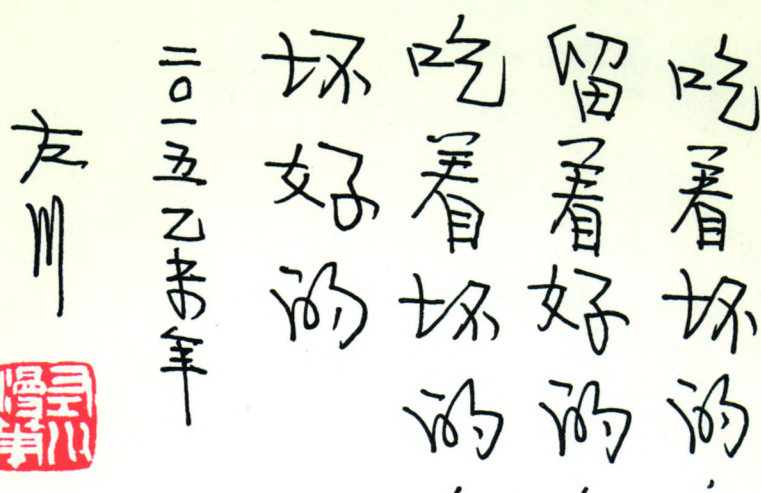 吃着坏的
留着好的
吃着坏的
坏好的
二〇一五乙未年
左川
左川
漫画